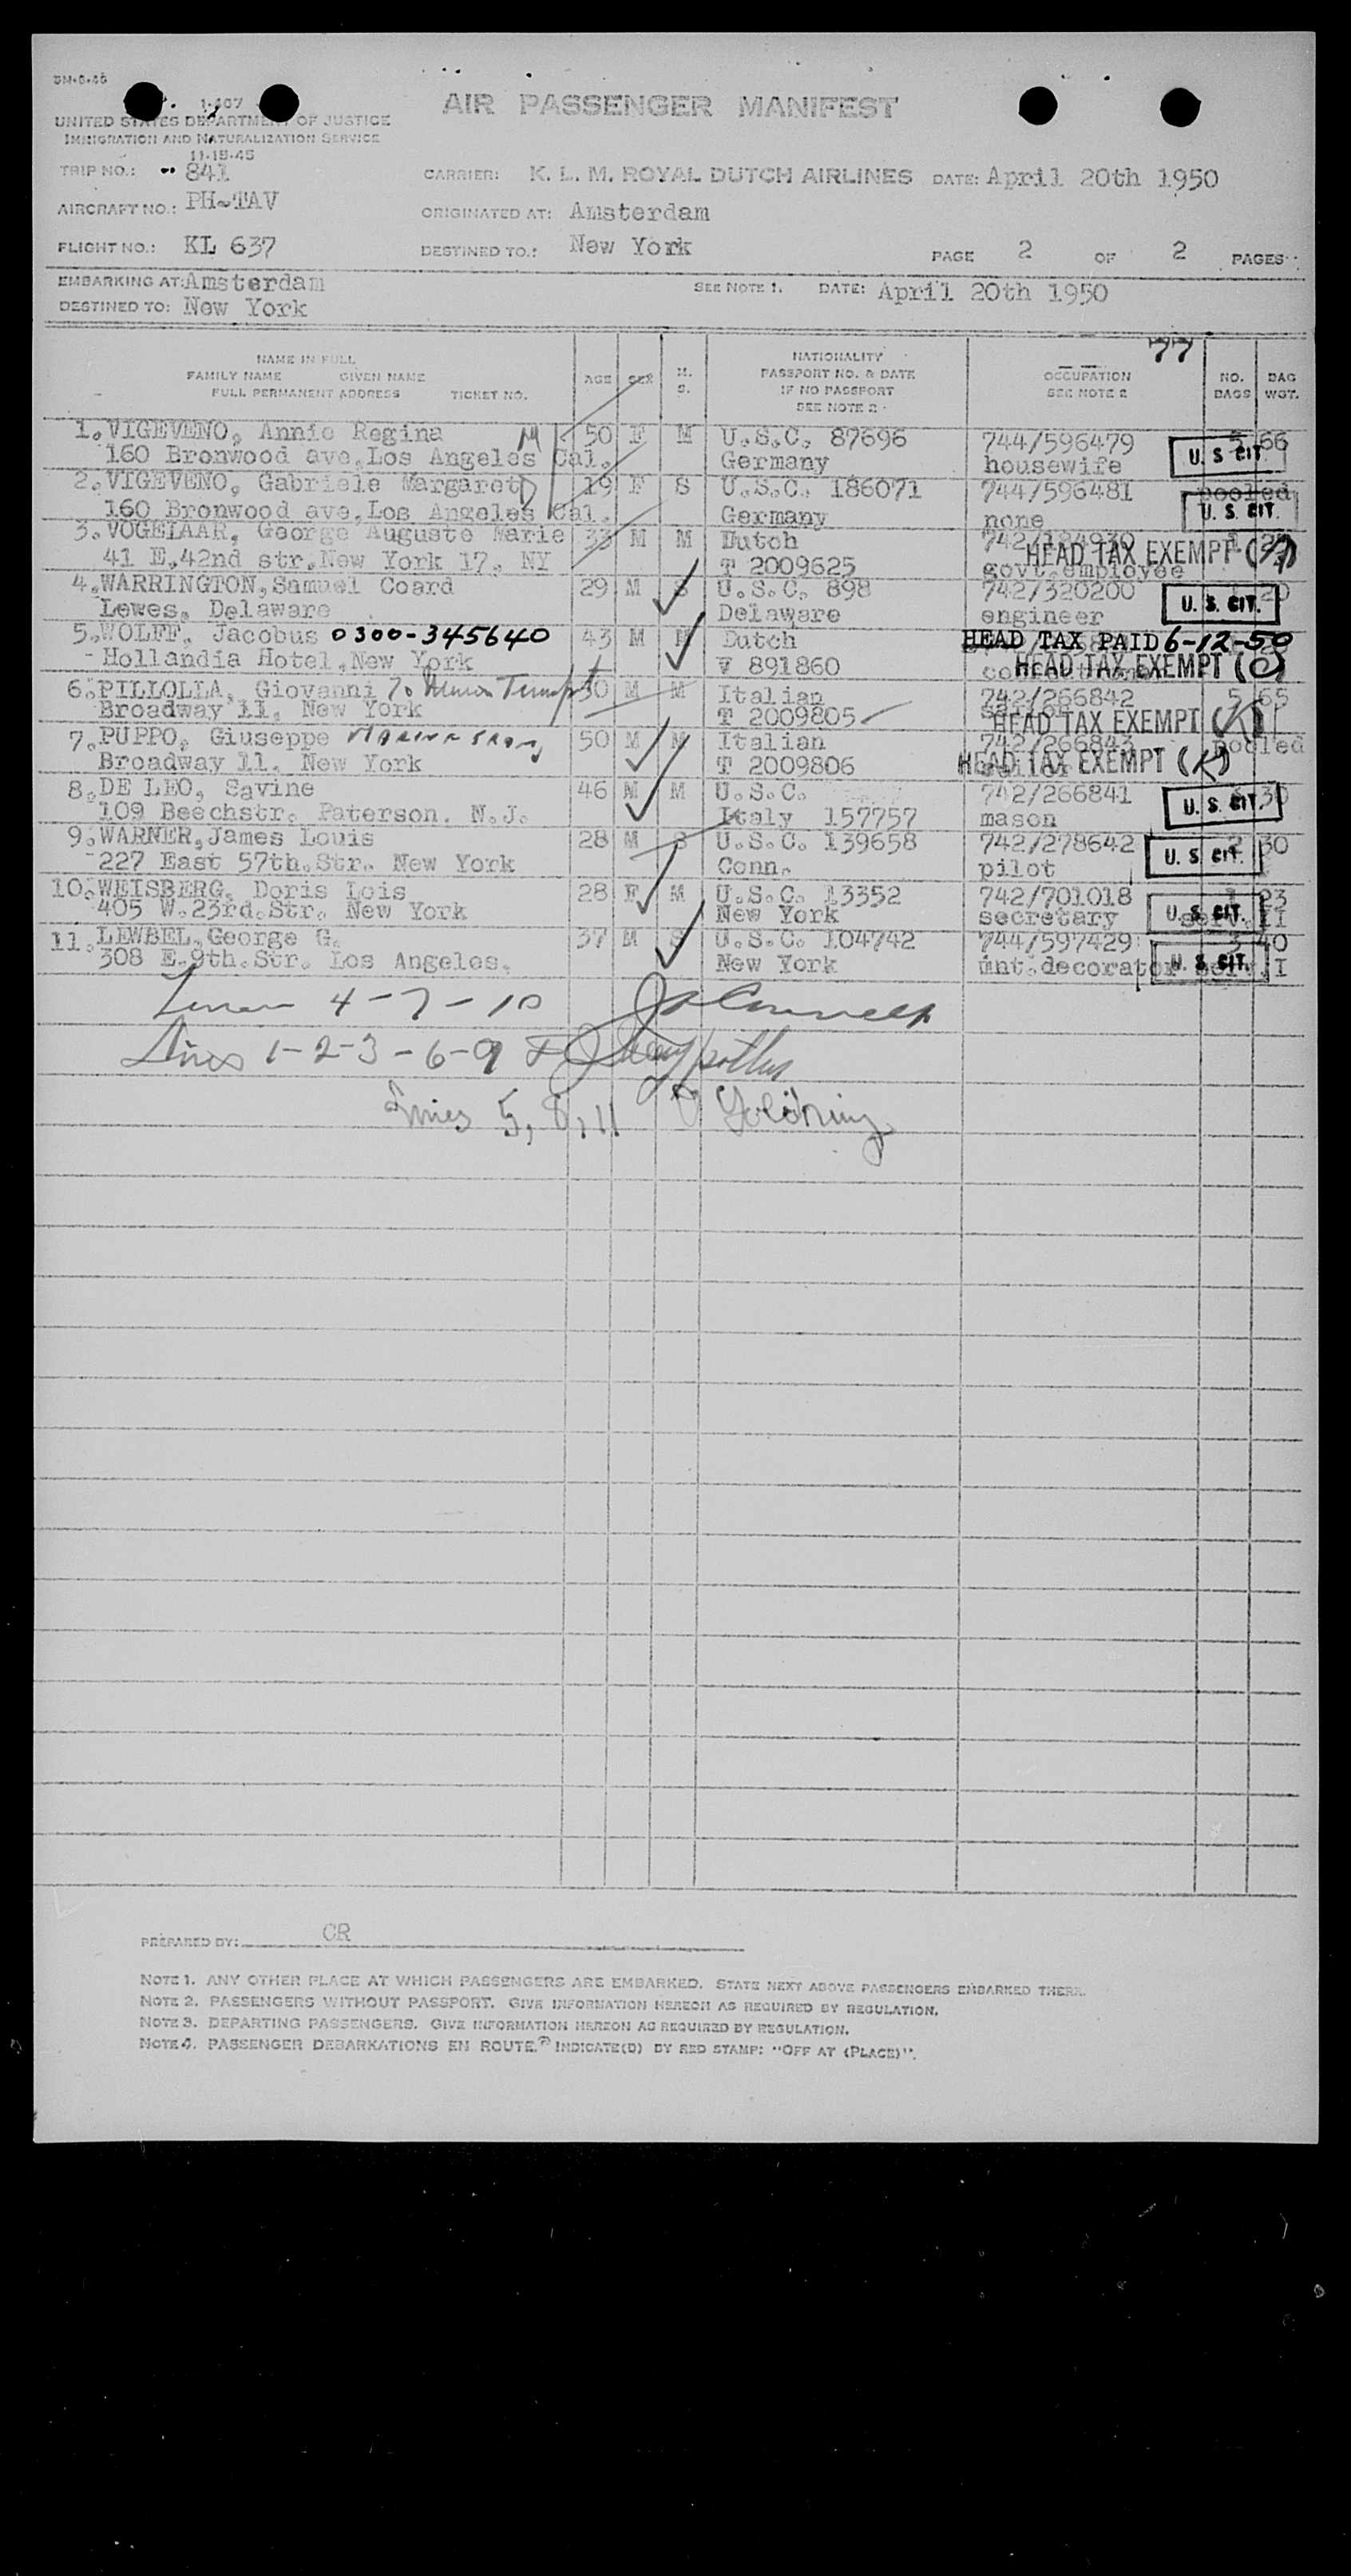 AIR PASSENGER MANIFEST
UNITED STATES DEPARTMENT OF JUSTICE
IMMIGRATION AND NATURALIZATION SERVICE
11-15-45
TRIP NO.: 841
CARRIER: K. L. M. ROYAL DUTCH AIRLINES DATE: April 20th 1950
AIRCRAFT NO.: PH-TAV
ORIGINATED AT: Amsterdam
FLIGHT NO.: KL 637
DESTINED TO.: New York
PAGE 2 OF 2 PAGES
EMBARKING AT: Amsterdam SEE NOTE 1. DATE: April 20th 1950
DESTINED TO: New York
77
NAME IN FULL
FAMILY NAME GIVEN NAME
FULL PERMANENT ADDRESS TICKET NO.
AGE SEX M. S.
NATIONALITY
PASSPORT NO. & DATE
IF NO PASSPORT
SEE NOTE 2
OCCUPATION
SEE NOTE 2
NO. BAGS
BAG WGT.
1. VIGEVENO, Annie Regina 50 F M U.S.C. 87696 744/596479 66
160 Bronwood ave, Los Angeles Cal. Germany housewife U. S. CIT.
2. VIGEVENO, Gabriele Margaret 19 F S U.S.C. 186071 744/596481 pooled
160 Bronwood ave, Los Angeles Cal. Germany none U. S. CIT.
3. VOGELAAR, George Auguste Marie 33 M M Dutch 742/124930
41 E.42nd str. New York 17, NY T 2009625 govt.employee HEAD TAX EXEMPT
4. WARRINGTON, Samuel Coard 29 M S U.S.C. 898 742/320200 20
Lewes, Delaware Delaware engineer U. S. CIT.
5. WOLFF, Jacobus 0300-345640 43 M M Dutch HEAD TAX PAID 6-12-50
Hollandia Hotel, New York V 891860 HEAD TAX EXEMPT
6. PILLOLLA, Giovanni 30 M M Italian 742/266842 5 65
Broadway 11, New York T 2009805 HEAD TAX EXEMPT
7. PUPPO, Giuseppe 50 M M Italian 742/266843 pooled
Broadway 11, New York T 2009806 HEAD TAX EXEMPT (K)
8. DE LEO, Savine 46 M M U.S.C. 742/266841 30
109 Beechstr. Paterson. N.J. Italy 157757 mason U. S. CIT.
9. WARNER, James Louis 28 M S U.S.C. 139658 742/278642 2 30
227 East 57th.Str. New York Conn. pilot U. S. CIT.
10. WEISBERG, Doris Lois 28 F M U.S.C. 13352 742/701018 23
405 W.23rd.Str. New York New York secretary U. S. CIT.
11. LEWBEL, George G. 37 M S U.S.C. 104742 744/597429 3 40
308 E.9th.Str. Los Angeles. New York int.decorator U. S. CIT.
4-7-10
Lines 1-2-3-6-9
Lines 5, 8, 11
PREPARED BY: CR
NOTE 1. ANY OTHER PLACE AT WHICH PASSENGERS ARE EMBARKED. STATE NEXT ABOVE PASSENGERS EMBARKED THERE.
NOTE 2. PASSENGERS WITHOUT PASSPORT. GIVE INFORMATION HEREON AS REQUIRED BY REGULATION.
NOTE 3. DEPARTING PASSENGERS. GIVE INFORMATION HEREON AS REQUIRED BY REGULATION.
NOTE 4. PASSENGER DEBARKATIONS EN ROUTE. INDICATE(D) BY RED STAMP: "OFF AT (PLACE)".